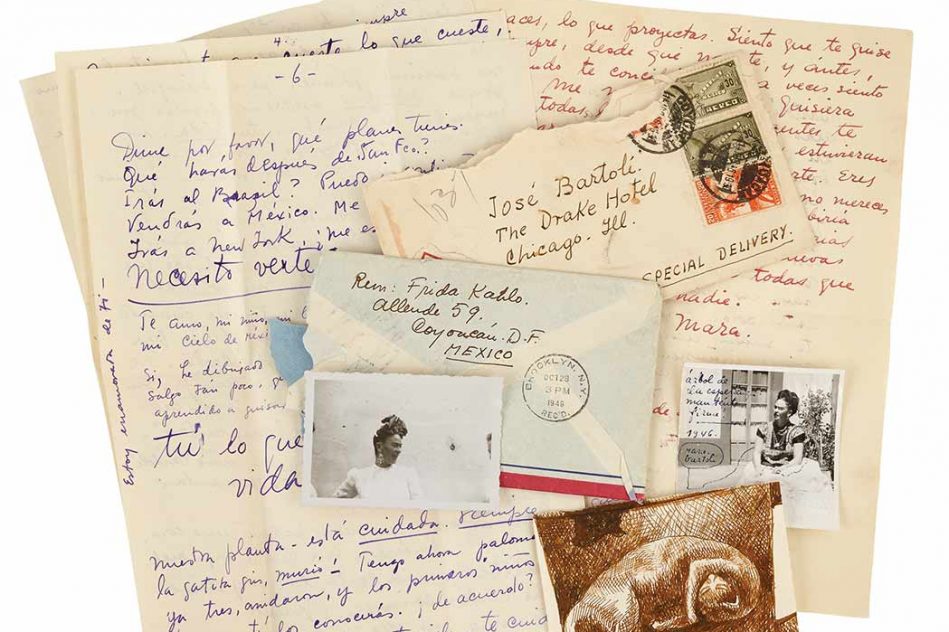 siempre
4.
cueste lo que cueste,
-6-
Dime por favor, qué planes tienes.
Qué harás despues de San Fco.?
Irás al Brasil? Puedo
Vendrás a México. Me
Irás a New York, ¿me es
Necesito verte
Te amo, mi niño, mi
mi cielo de Méxi
Si, he dibujado
Salgo tan poco, q
aprendido a guisar
tú lo que
vida
nuestra planta- está cuidada. Siempre
la gatita gris, murió! Tengo ahora paloma
ya tres, anidaron, y los primeros niños
los conocerás. ¡de acuerdo?
te cuid
Estoy enamorada de ti-
aces, lo que proyectas. Siento que te quise
mpre, desde que na te, y ántes,
ndo te conci
Me a veces siento
todas quisiera
entes, te
estuvieran
rte. Eres
no mereces
biria
rias
nuevas
todas que
nadie.
Mara.
José Bartolí.
The Drake Hotel
Chicago. Ill.
SPECIAL DELIVERY.
MEXICO
AEREO
30
30
Rem: Frida Kahlo.
Allende 59.
Coyoacán. D.F.
MEXICO
BROOKLYN, N.Y.
OCT 28
3 PM
1946
REC'D.
árbol de
la espera
man tente
firme!
1946.
Mara
Bartolí